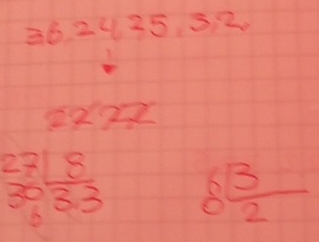 36, 24, 25, 3, 2,
2222
27 8
30 33
6
6 3
0 2